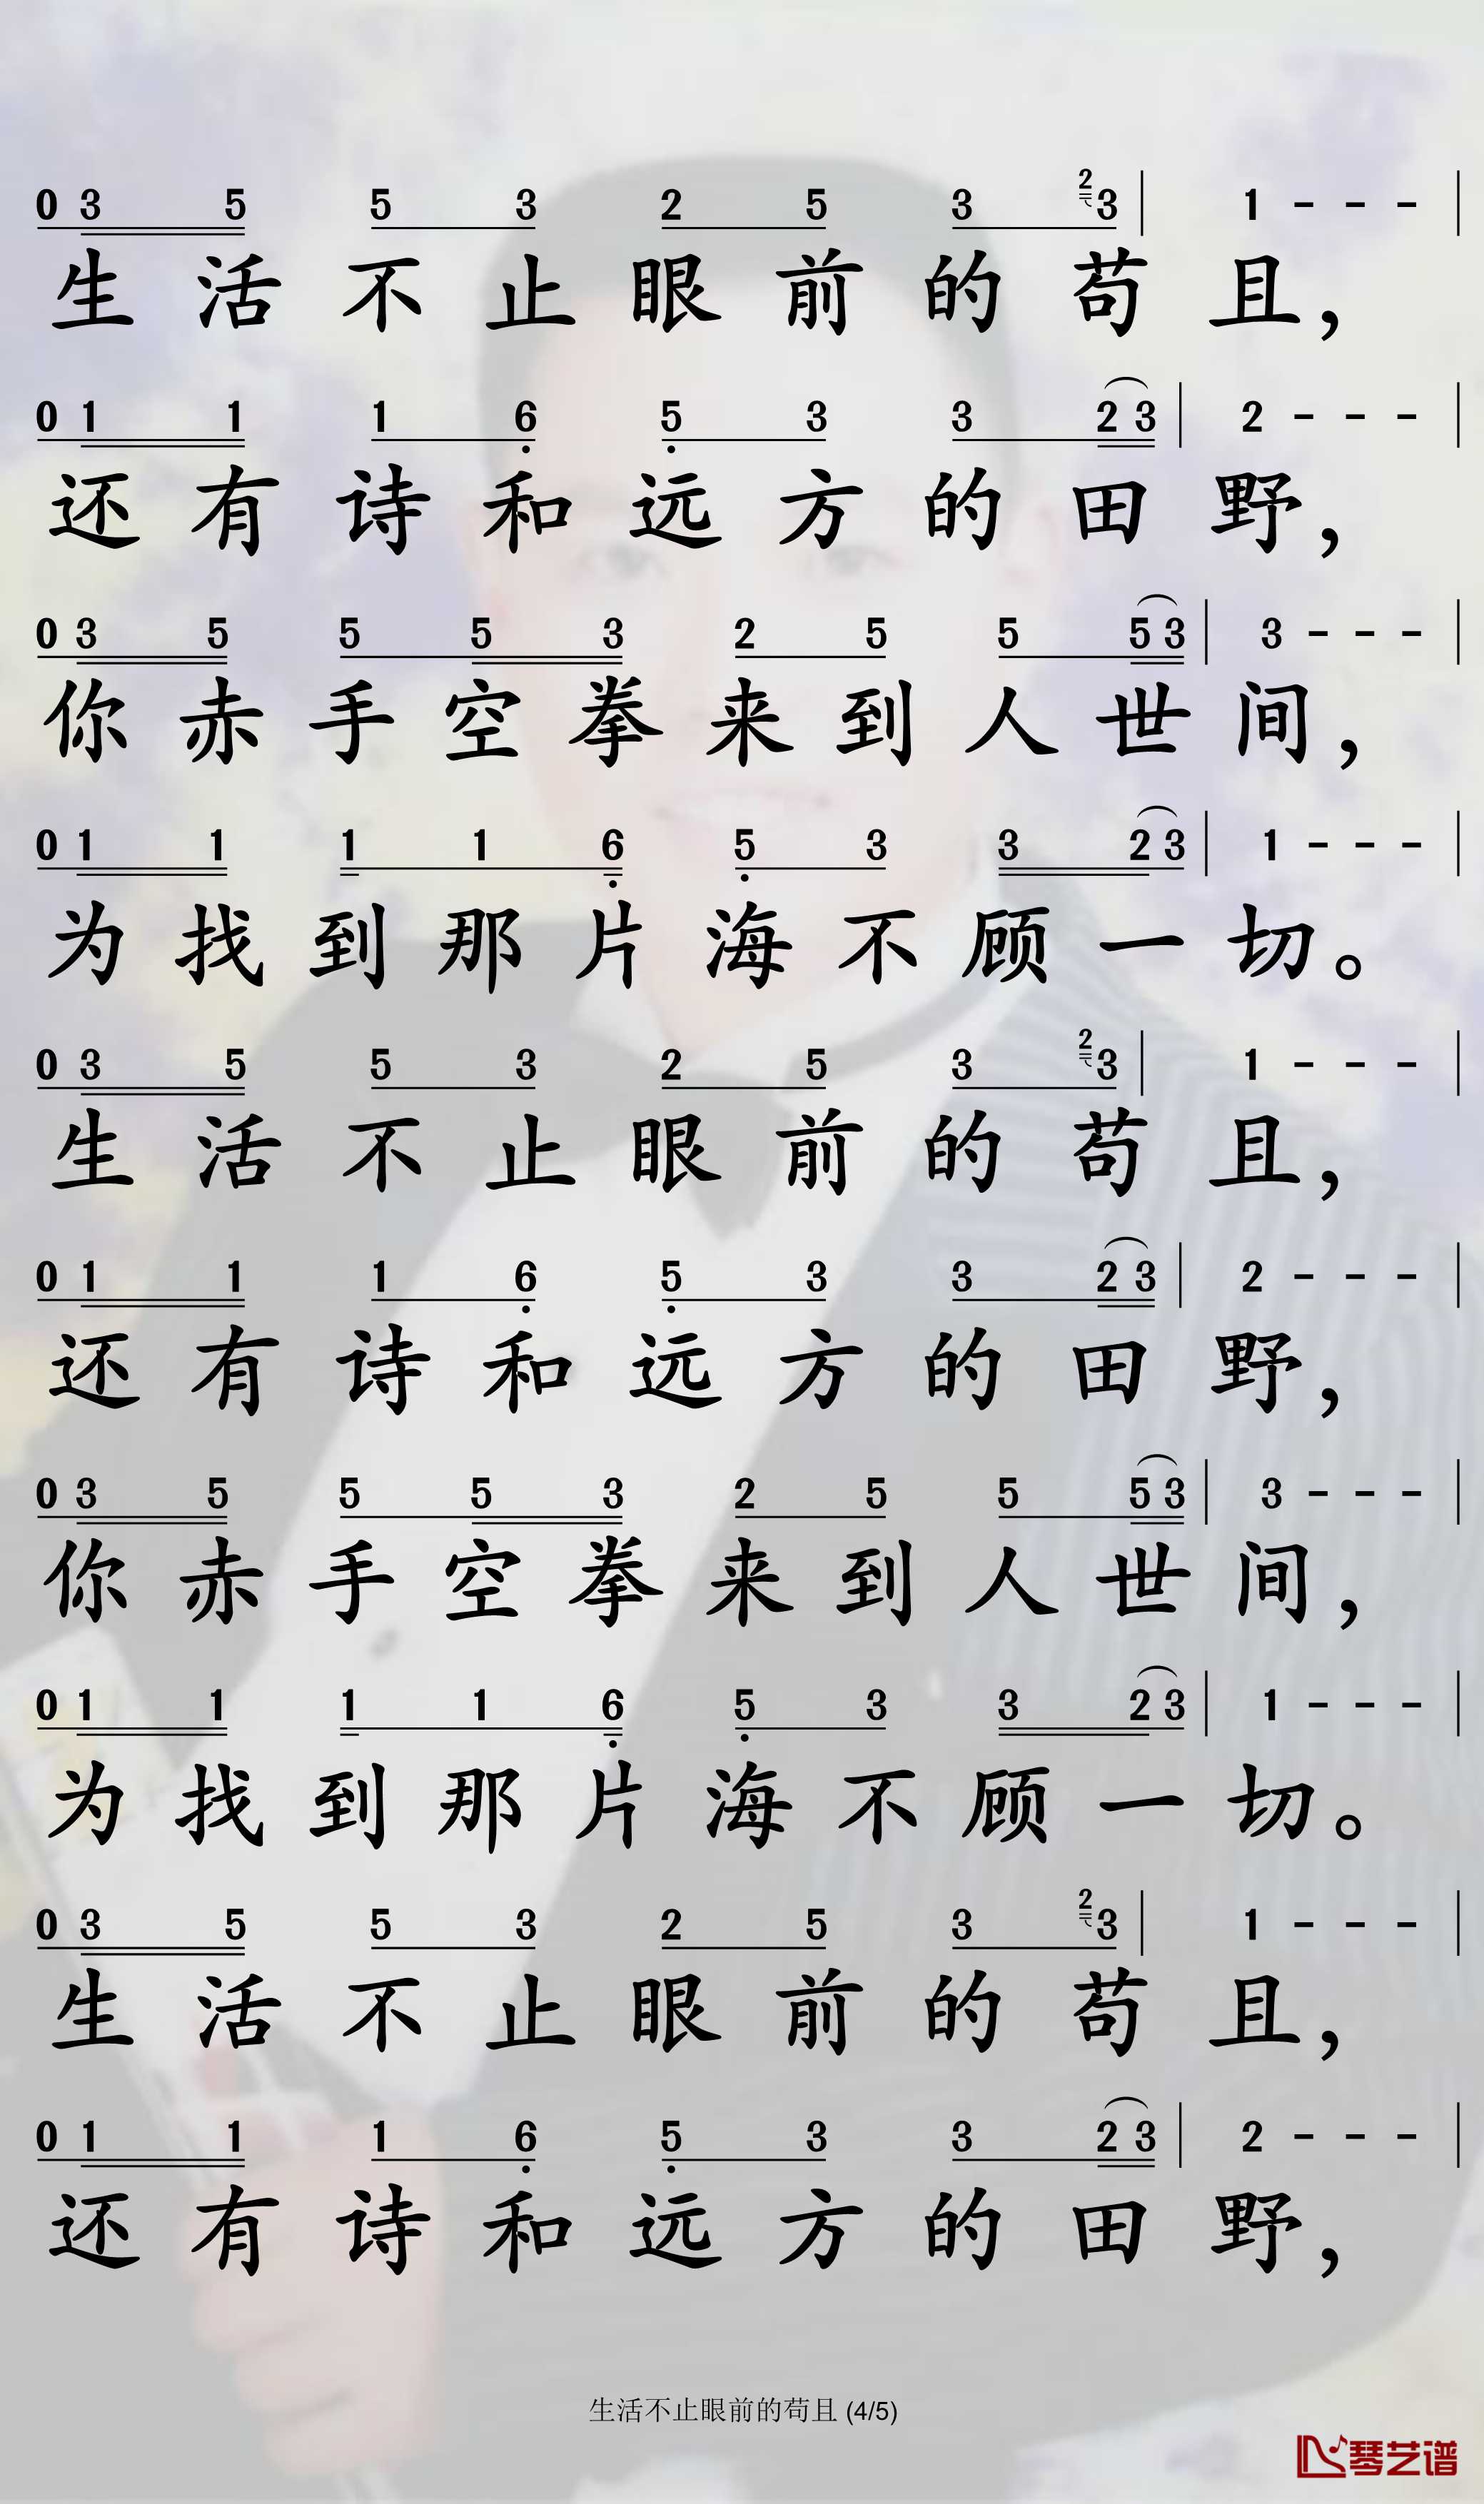 0 3 5 5 3 2 5 3 2 3 | 1 - - - |
生活不止眼前的苟且，
0 1 1 1 6 5 3 3 2 3 | 2 - - - |
还有诗和远方的田野，
0 3 5 5 5 3 2 5 5 5 3 | 3 - - - |
你赤手空拳来到人世间，
0 1 1 1 1 6 5 3 3 2 3 | 1 - - - |
为找到那片海不顾一切。
0 3 5 5 3 2 5 3 2 3 | 1 - - - |
生活不止眼前的苟且，
0 1 1 1 6 5 3 3 2 3 | 2 - - - |
还有诗和远方的田野，
0 3 5 5 5 3 2 5 5 5 3 | 3 - - - |
你赤手空拳来到人世间，
0 1 1 1 1 6 5 3 3 2 3 | 1 - - - |
为找到那片海不顾一切。
0 3 5 5 3 2 5 3 2 3 | 1 - - - |
生活不止眼前的苟且，
0 1 1 1 6 5 3 3 2 3 | 2 - - - |
还有诗和远方的田野，
生活不止眼前的苟且 (4/5)
琴艺谱